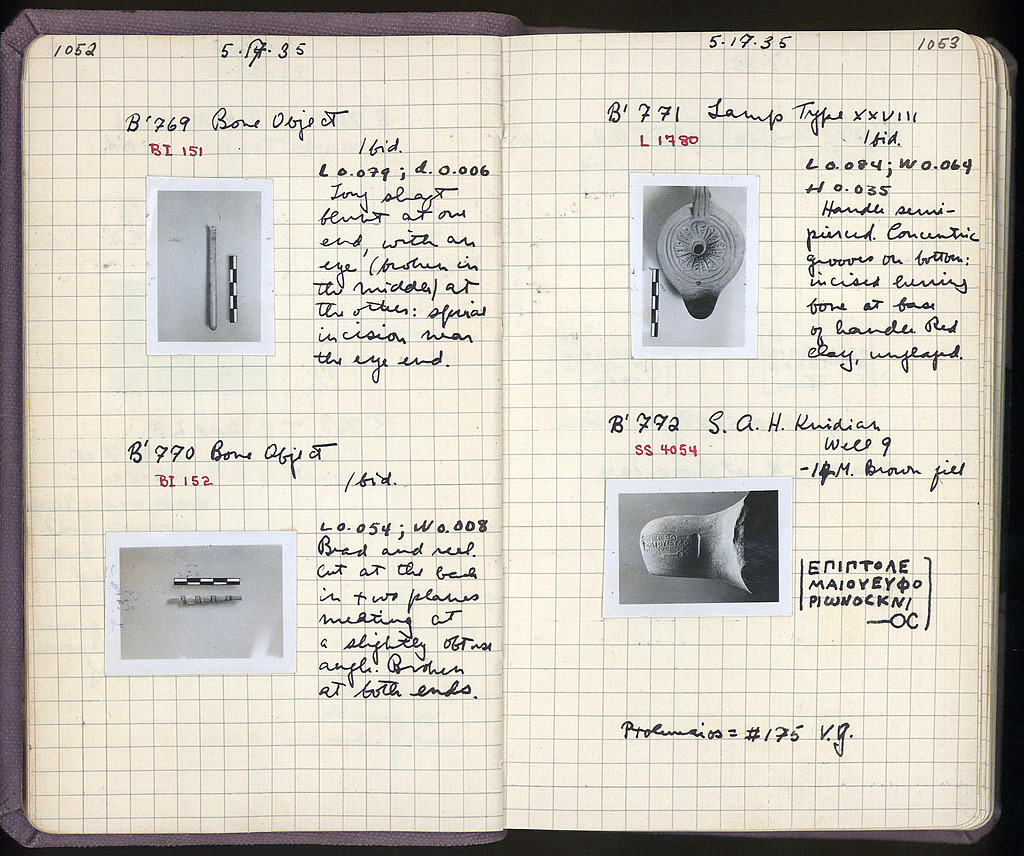 1052
5·17·35
B'769 Bone Object
BI 151
Ibid.
L 0.079; d. 0.006
Long shaft
blunt at one
end, with an
eye (broken in
the middle) at
the other: spiral
incision near
the eye end.
B'770 Bone Object
BI 152
Ibid.
L 0.054; W 0.008
Bead and reel.
Cut at the back
in two planes
meeting at
a slightly obtuse
angle. Broken
at both ends.
5·17·35
1053
B'771 Lamp Type XXVIII
L 1780
Ibid.
L 0.084; W 0.064
H 0.035
Handle semi-
pierced. Concentric
grooves on bottom:
incised herring
bone at base
of handle Red
clay, unglazed.
B'772 S. A. H. Knidian
SS 4054
Well 9
-14 M. Brown fill
ΕΠΙΠΤΟΛΕ
ΜΑΙΟΥΕΥΦΟ
ΡΙΩΝΟCΚΝΙ
—ΟC
Ptolemaios = #175 V.G.